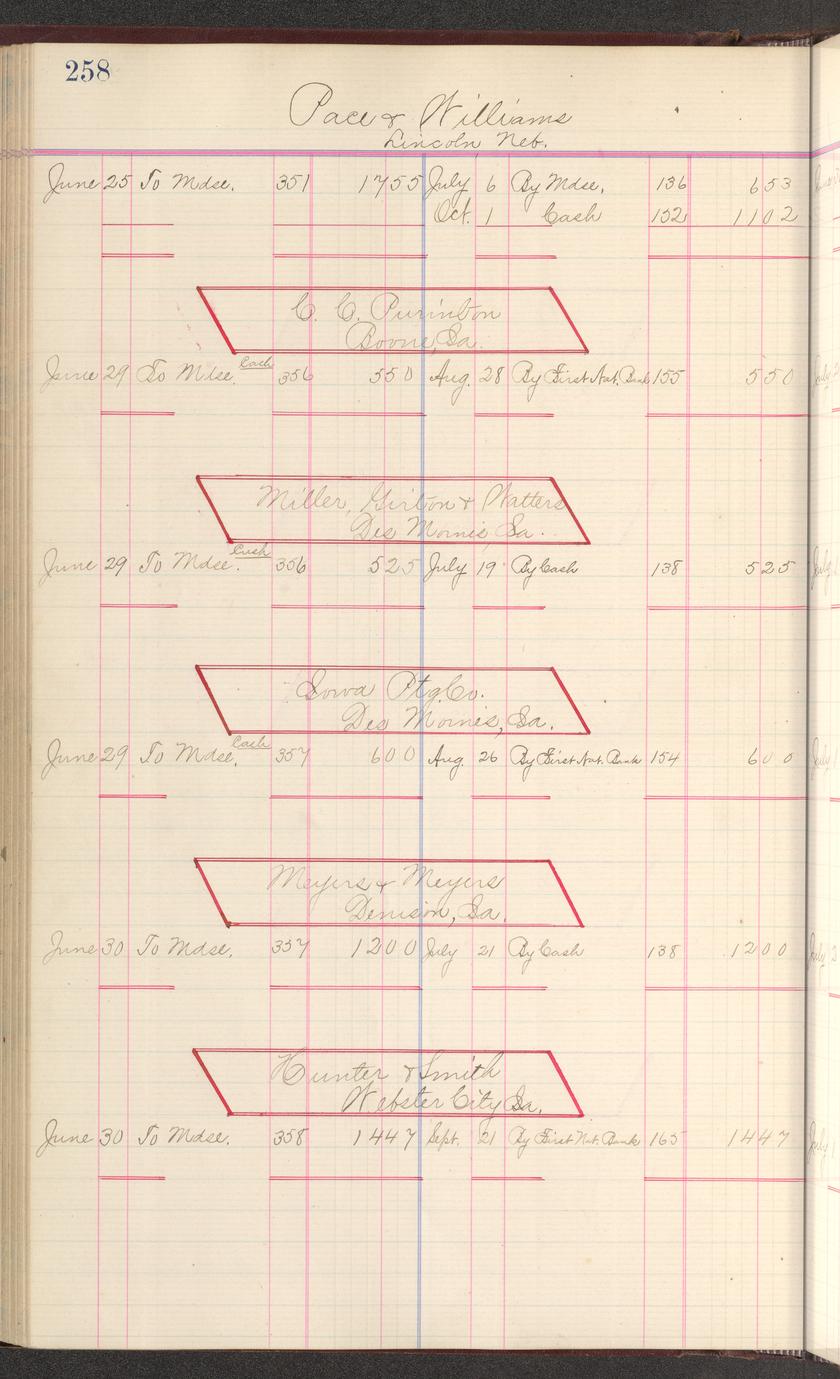 258
Pace & Williams
Lincoln Neb.
June 25 To Mdse. 351 1755 July 6 By Mdse. 136 653
Oct. 1 Cash 152 1102
C. C. Purinton
Boone, Ia.
June 29 To Mdse. Cash 356 550 Aug. 28 By First Nat. Bank 155 550
Miller, Girton & Watters
Des Moines, Ia.
June 29 To Mdse. Cash 356 525 July 19 By Cash 138 525
Iowa Ptg. Co.
Des Moines, Ia.
June 29 To Mdse. Cash 357 600 Aug. 26 By First Nat. Bank 154 600
Meyers & Meyers
Denison, Ia.
June 30 To Mdse. 357 1200 July 21 By Cash 138 1200
Hunter & Smith
Webster City Ia.
June 30 To Mdse. 358 1447 Sept. 21 By First Nat. Bank 165 1447